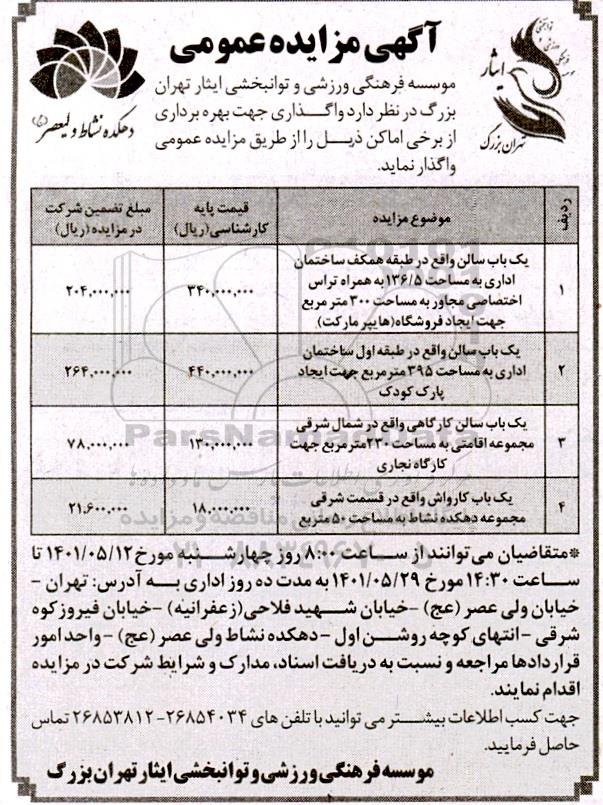 آگهی مزایده عمومی
موسسه فرهنگی ورزشی و توانبخشی
ایثار
تهران بزرگ
دهکده نشاط ولیعصر (عج)
موسسه فرهنگی ورزشی و توانبخشی ایثار تهران
بزرگ در نظر دارد واگذاری جهت بهره برداری
از برخی اماکن ذیل را از طریق مزایده عمومی
واگذار نماید.
ردیف
موضوع مزایده
قیمت پایه
کارشناسی (ریال)
مبلغ تضمین شرکت
در مزایده (ریال)
۱
یک باب سالن واقع در طبقه همکف ساختمان
اداری به مساحت ۱۳۶/۵ به همراه تراس
اختصاصی مجاور به مساحت ۳۰۰ متر مربع
جهت ایجاد فروشگاه(هایپر مارکت)
۳۴۰,۰۰۰,۰۰۰
۲۰۴,۰۰۰,۰۰۰
۲
یک باب سالن واقع در طبقه اول ساختمان
اداری به مساحت ۳۹۵ متر مربع جهت ایجاد
پارک کودک
۴۴۰,۰۰۰,۰۰۰
۲۶۴,۰۰۰,۰۰۰
۳
یک باب سالن کارگاهی واقع در شمال شرقی
مجموعه اقامتی به مساحت ۲۳۰ متر مربع جهت
کارگاه نجاری
۱۳۰,۰۰۰,۰۰۰
۷۸,۰۰۰,۰۰۰
۴
یک باب کارواش واقع در قسمت شرقی
مجموعه دهکده نشاط به مساحت ۵۰ متربع
۱۸,۰۰۰,۰۰۰
۲۱,۶۰۰,۰۰۰
ParsNamadData
۰۲۱-۸۸۳۴۹۶۷۰-۵
*متقاضیان می توانند از ساعت ۸:۰۰ روز چهارشنبه مورخ ۱۴۰۱/۰۵/۱۲ تا
ساعت ۱۴:۳۰ مورخ ۱۴۰۱/۰۵/۲۹ به مدت ده روز اداری به آدرس: تهران -
خیابان ولی عصر (عج) -خیابان شهید فلاحی(زعفرانیه) -خیابان فیروز کوه
شرقی -انتهای کوچه روشن اول -دهکده نشاط ولی عصر (عج) -واحد امور
قراردادها مراجعه و نسبت به دریافت اسناد، مدارک و شرایط شرکت در مزایده
اقدام نمایند.
جهت کسب اطلاعات بیشتر می توانید با تلفن های ۲۶۸۵۴۰۳۴-۲۶۸۵۳۸۱۲ تماس
حاصل فرمایید.
موسسه فرهنگی ورزشی و توانبخشی ایثار تهران بزرگ